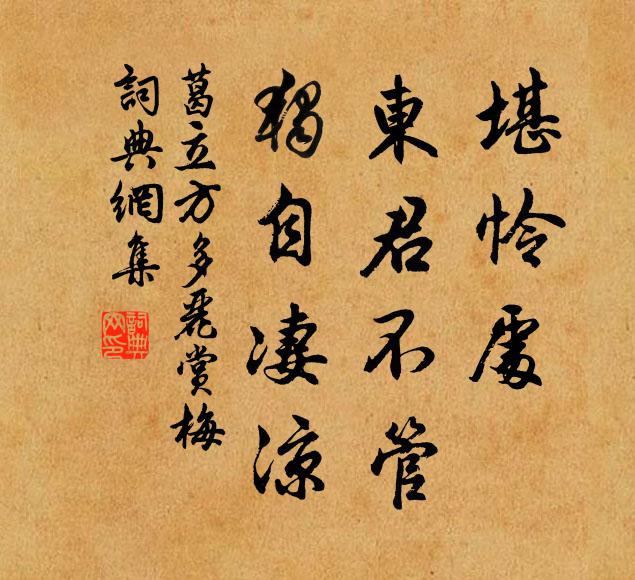 堪怜處
東君不管
獨自凄凉
葛立方多麗賞梅
詞典網集
詞典
网印